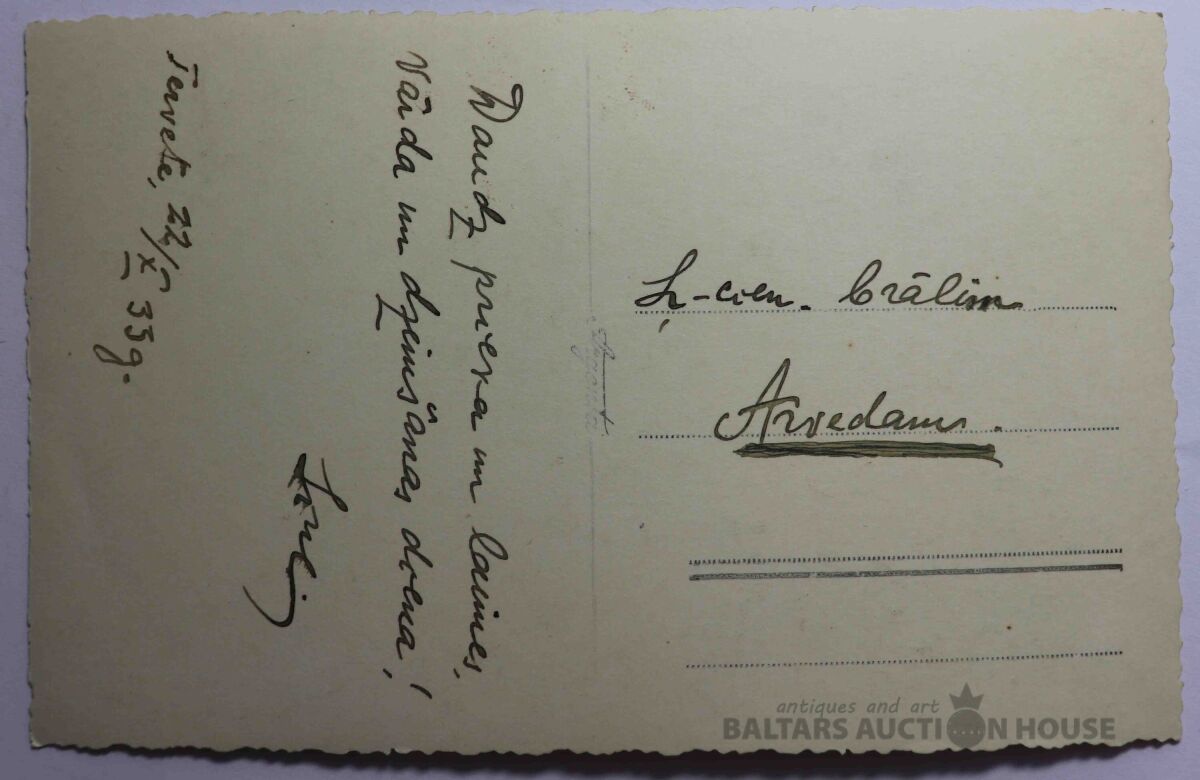 Daudz prieka un laimes,
vārda un dzimšanas diena!
Tērvetē, 22/X 33g.
Ļ-cien. brālim
Arvedam.
antiques and art
BALTARS AUCTION HOUSE